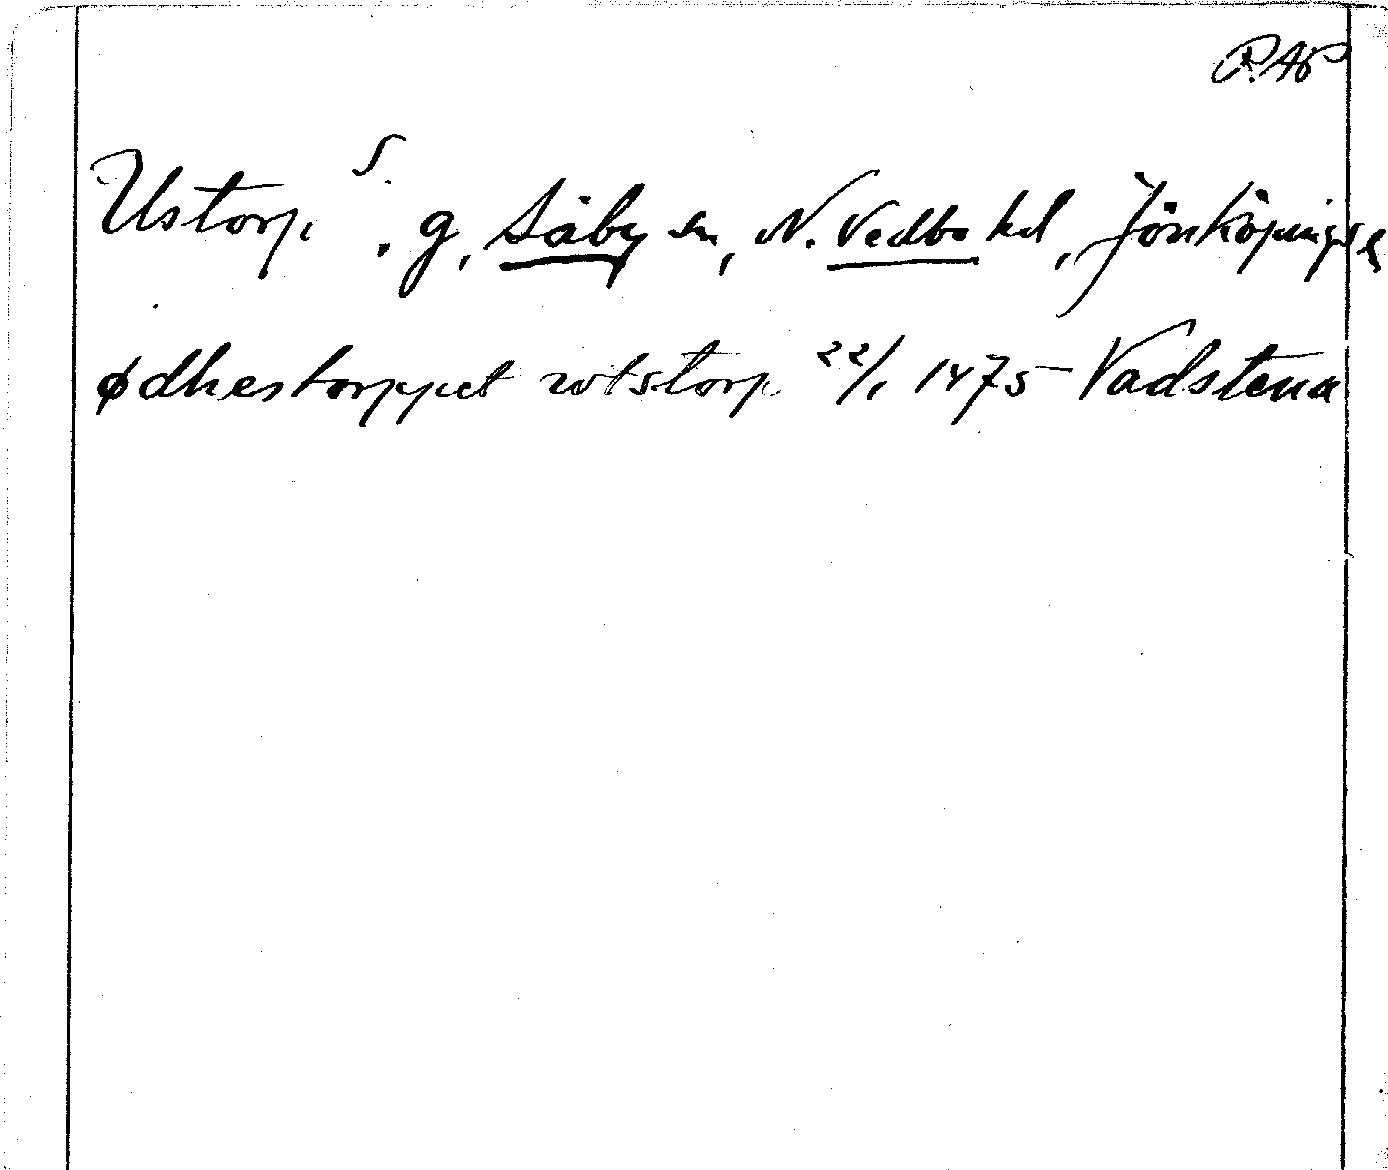 RAP
Ustorp S. g, Säby sn, N. Vedbo hd, Jönköpings l
ødhestorppet wtstorp 22/1 1475 Vadstena